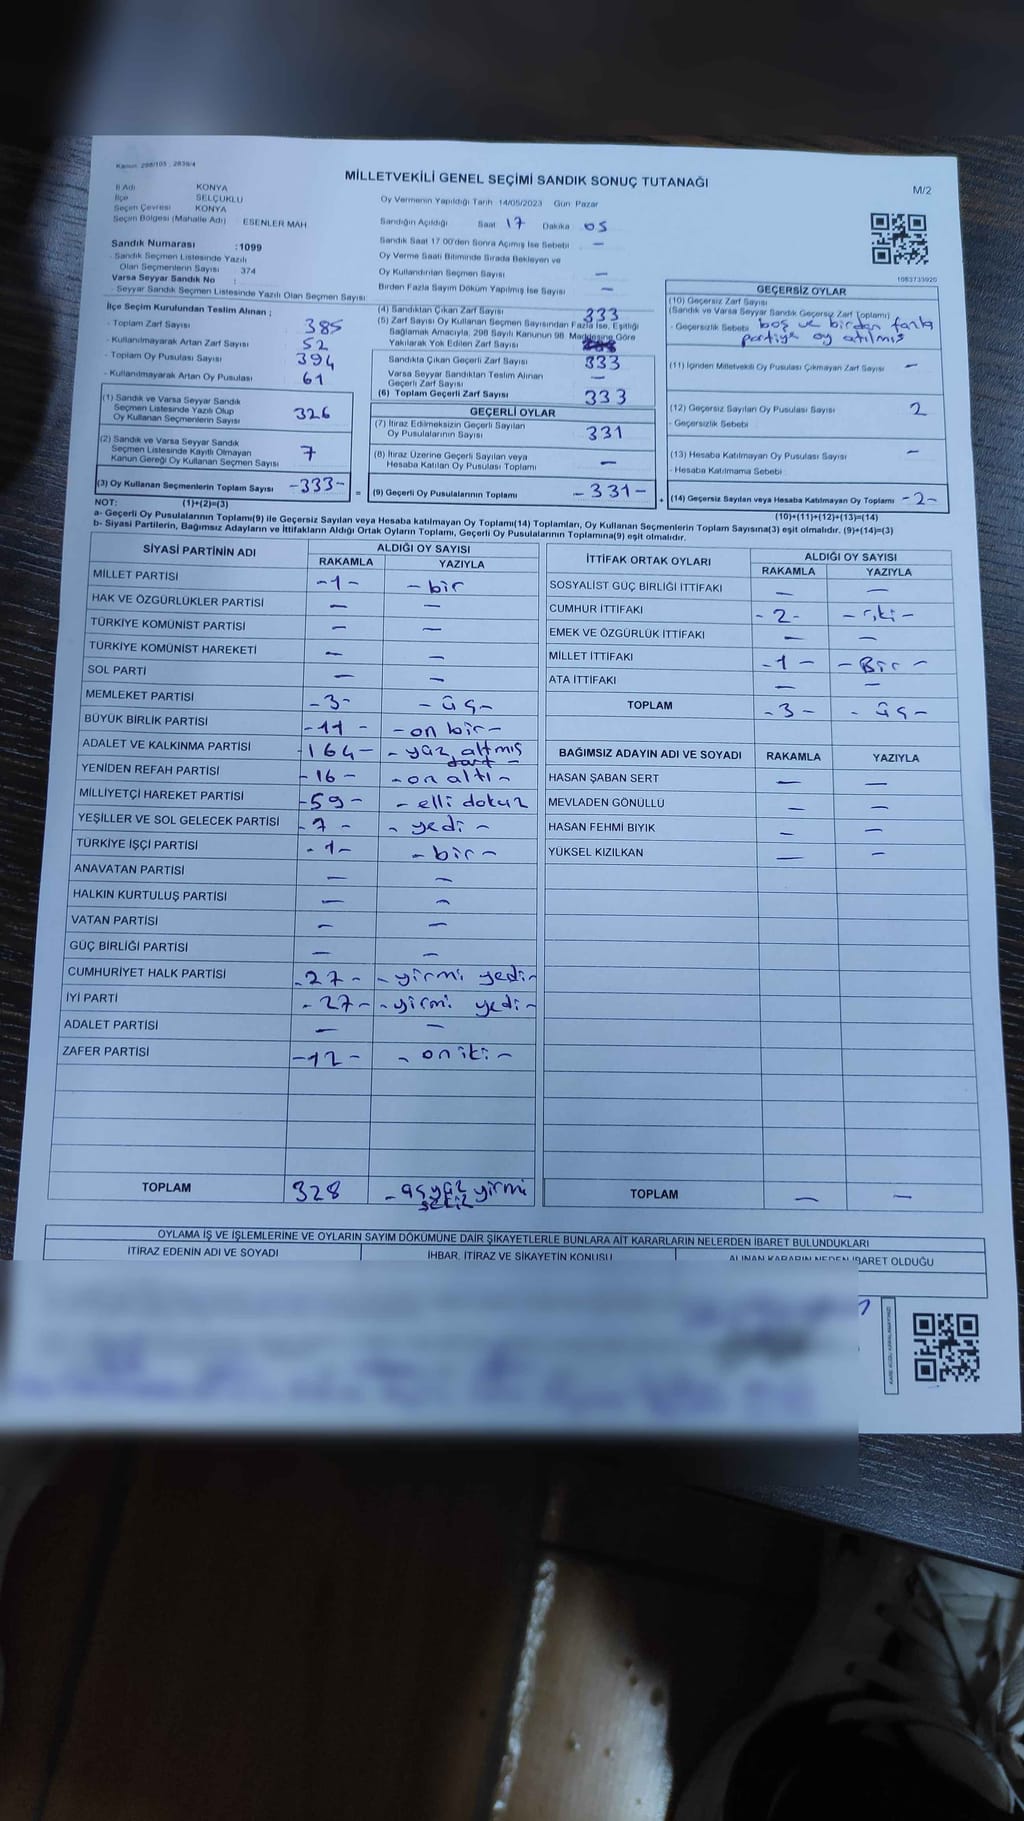 Kanun: 298/105 , 2839/4
MİLLETVEKİLİ GENEL SEÇİMİ SANDIK SONUÇ TUTANAĞI
M/2
İl Adı KONYA
İlçe SELÇUKLU
Seçim Çevresi KONYA
Seçim Bölgesi (Mahalle Adı) ESENLER MAH
Oy Vermenin Yapıldığı Tarih 14/05/2023 Gün Pazar
Sandığın Açıldığı Saat 17 Dakika 05
Sandık Saat 17.00'den Sonra Açımış İse Sebebi –
Oy Verme Saati Bitiminde Sırada Bekleyen ve
Oy Kullandırılan Seçmen Sayısı –
Birden Fazla Sayım Döküm Yapılmış İse Sayısı –
Sandık Numarası : 1099
- Sandık Seçmen Listesinde Yazılı
Olan Seçmenlerin Sayısı : 374
Varsa Seyyar Sandık No :
- Seyyar Sandık Seçmen Listesinde Yazılı Olan Seçmen Sayısı:
1083733920
İlçe Seçim Kurulundan Teslim Alınan ;
- Toplam Zarf Sayısı 385
- Kullanılmayarak Artan Zarf Sayısı 52
- Toplam Oy Pusulası Sayısı 394
- Kullanılmayarak Artan Oy Pusulası 61
(1) Sandık ve Varsa Seyyar Sandık
Seçmen Listesinde Yazılı Olup
Oy Kullanan Seçmenlerin Sayısı 326
(2) Sandık ve Varsa Seyyar Sandık
Seçmen Listesinde Kayıtlı Olmayan
Kanun Gereği Oy Kullanan Seçmen Sayısı 7
(3) Oy Kullanan Seçmenlerin Toplam Sayısı -333-
(4) Sandıktan Çıkan Zarf Sayısı 333
(5) Zarf Sayısı Oy Kullanan Seçmen Sayısından Fazla İse, Eşitliği
Sağlamak Amacıyla, 298 Sayılı Kanunun 98. Maddesine Göre
Yakılarak Yok Edilen Zarf Sayısı
Sandıkta Çıkan Geçerli Zarf Sayısı 333
Varsa Seyyar Sandıktan Teslim Alınan
Geçerli Zarf Sayısı –
(6) Toplam Geçerli Zarf Sayısı 333
GEÇERLİ OYLAR
(7) İtiraz Edilmeksizin Geçerli Sayılan
Oy Pusulalarının Sayısı 331
(8) İtiraz Üzerine Geçerli Sayılan veya
Hesaba Katılan Oy Pusulası Toplamı –
= (9) Geçerli Oy Pusulalarının Toplamı -331- +
GEÇERSİZ OYLAR
(10) Geçersiz Zarf Sayısı
(Sandık ve Varsa Seyyar Sandık Geçersiz Zarf Toplamı) –
- Geçersizlik Sebebi: boş ve birden fazla
partiye oy atılmış
(11) İçinden Milletvekili Oy Pusulası Çıkmayan Zarf Sayısı –
(12) Geçersiz Sayılan Oy Pusulası Sayısı 2
- Geçersizlik Sebebi
(13) Hesaba Katılmayan Oy Pusulası Sayısı –
- Hesaba Katılmama Sebebi
(14) Geçersiz Sayılan veya Hesaba Katılmayan Oy Toplamı -2-
NOT: (1)+(2)=(3) (10)+(11)+(12)+(13)=(14)
a- Geçerli Oy Pusulalarının Toplamı(9) ile Geçersiz Sayılan veya Hesaba katılmayan Oy Toplamı(14) Toplamları, Oy Kullanan Seçmenlerin Toplam Sayısına(3) eşit olmalıdır. (9)+(14)=(3)
b- Siyasi Partilerin, Bağımsız Adayların ve İttifakların Aldığı Ortak Oyların Toplamı, Geçerli Oy Pusulalarının Toplamına(9) eşit olmalıdır.
SİYASİ PARTİNİN ADI ALDIĞI OY SAYISI
RAKAMLA YAZIYLA
MİLLET PARTİSİ -1- - bir
HAK VE ÖZGÜRLÜKLER PARTİSİ – –
TÜRKİYE KOMÜNİST PARTİSİ – –
TÜRKİYE KOMÜNİST HAREKETİ – –
SOL PARTİ – –
MEMLEKET PARTİSİ -3- - üç-
BÜYÜK BİRLİK PARTİSİ -11- -on bir-
ADALET VE KALKINMA PARTİSİ -164- - yüz altmış
dört -
YENİDEN REFAH PARTİSİ -16- -on altı-
MİLLİYETÇİ HAREKET PARTİSİ -59- - elli dokuz
YEŞİLLER VE SOL GELECEK PARTİSİ -7- - yedi -
TÜRKİYE İŞÇİ PARTİSİ -1- - bir -
ANAVATAN PARTİSİ – –
HALKIN KURTULUŞ PARTİSİ – –
VATAN PARTİSİ – –
GÜÇ BİRLİĞİ PARTİSİ – –
CUMHURİYET HALK PARTİSİ -27- - yirmi yedi-
İYİ PARTİ -27- -yirmi yedi-
ADALET PARTİSİ – –
ZAFER PARTİSİ -12- - on iki -
TOPLAM 328 - üç yüz yirmi
sekiz
İTTİFAK ORTAK OYLARI ALDIĞI OY SAYISI
RAKAMLA YAZIYLA
SOSYALİST GÜÇ BİRLİĞİ İTTİFAKI – –
CUMHUR İTTİFAKI -2- - iki -
EMEK VE ÖZGÜRLÜK İTTİFAKI – –
MİLLET İTTİFAKI -1- - Bir -
ATA İTTİFAKI – –
TOPLAM -3- - üç -
BAĞIMSIZ ADAYIN ADI VE SOYADI RAKAMLA YAZIYLA
HASAN ŞABAN SERT – –
MEVLADEN GÖNÜLLÜ – –
HASAN FEHMİ BIYIK – –
YÜKSEL KIZILKAN – –
TOPLAM – –
OYLAMA İŞ VE İŞLEMLERİNE VE OYLARIN SAYIM DÖKÜMÜNE DAİR ŞİKAYETLERLE BUNLARA AİT KARARLARIN NELERDEN İBARET BULUNDUKLARI
İTİRAZ EDENİN ADI VE SOYADI İHBAR, İTİRAZ VE ŞİKAYETİN KONUSU ALINAN KARARIN NEDEN İBARET OLDUĞU